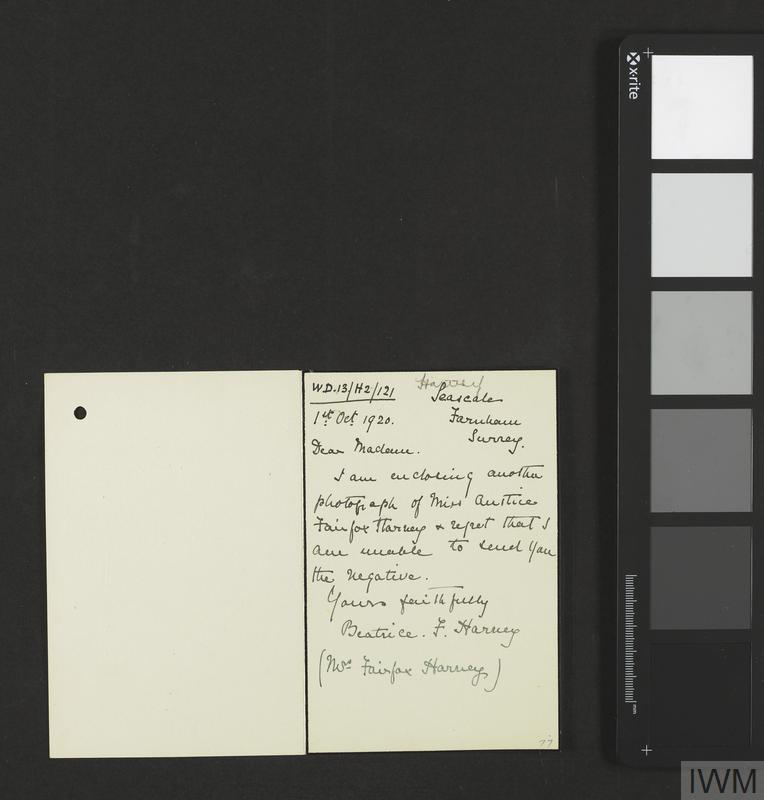 W.D.13/H2/121
Harvey
Seascale
Farnham
Surrey.
1st Oct. 1920.
Dear Madam.
I am enclosing another
photograph of Miss Austice
Fairfax Harney & regret that I
am unable to send you
the negative.
Yours faithfully
Beatrice. F. Harney
(Mrs Fairfax Harney)
77
x·rite
mm
IWM